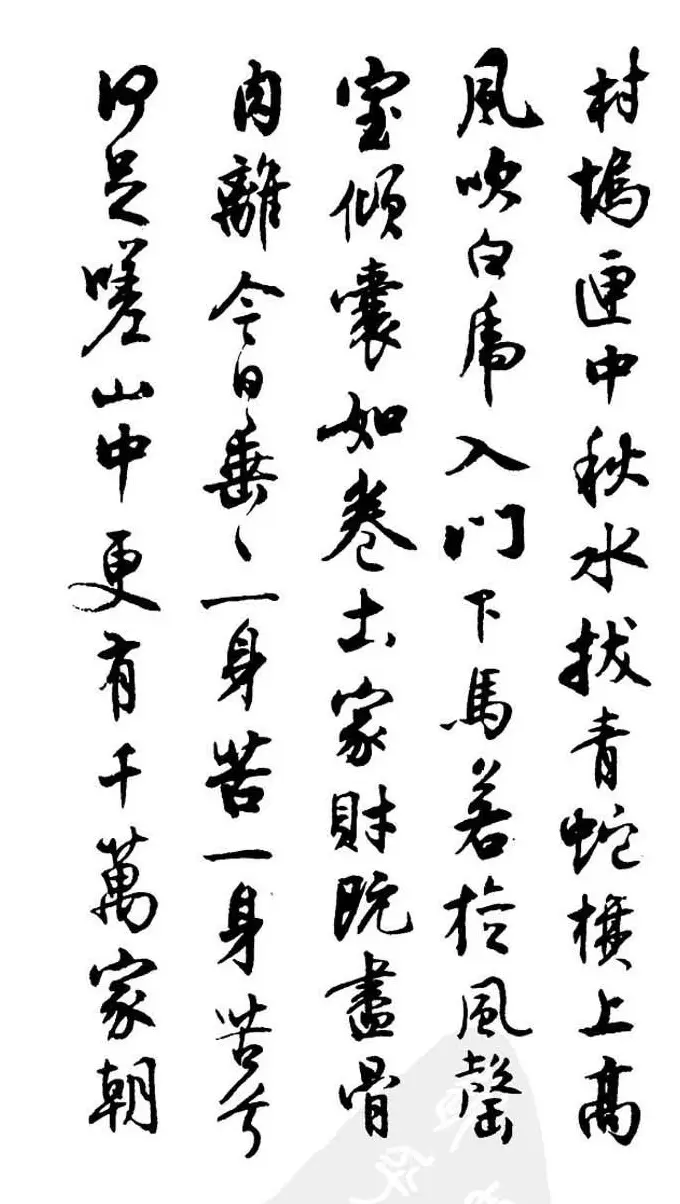 村塢匣中秋水拔青蛇旗上高
風吹白虎入門下馬若旋風罄
室傾囊如卷土家財既盡骨
肉離今日垂〻一身苦一身苦兮
何足嗟山中更有千萬家朝